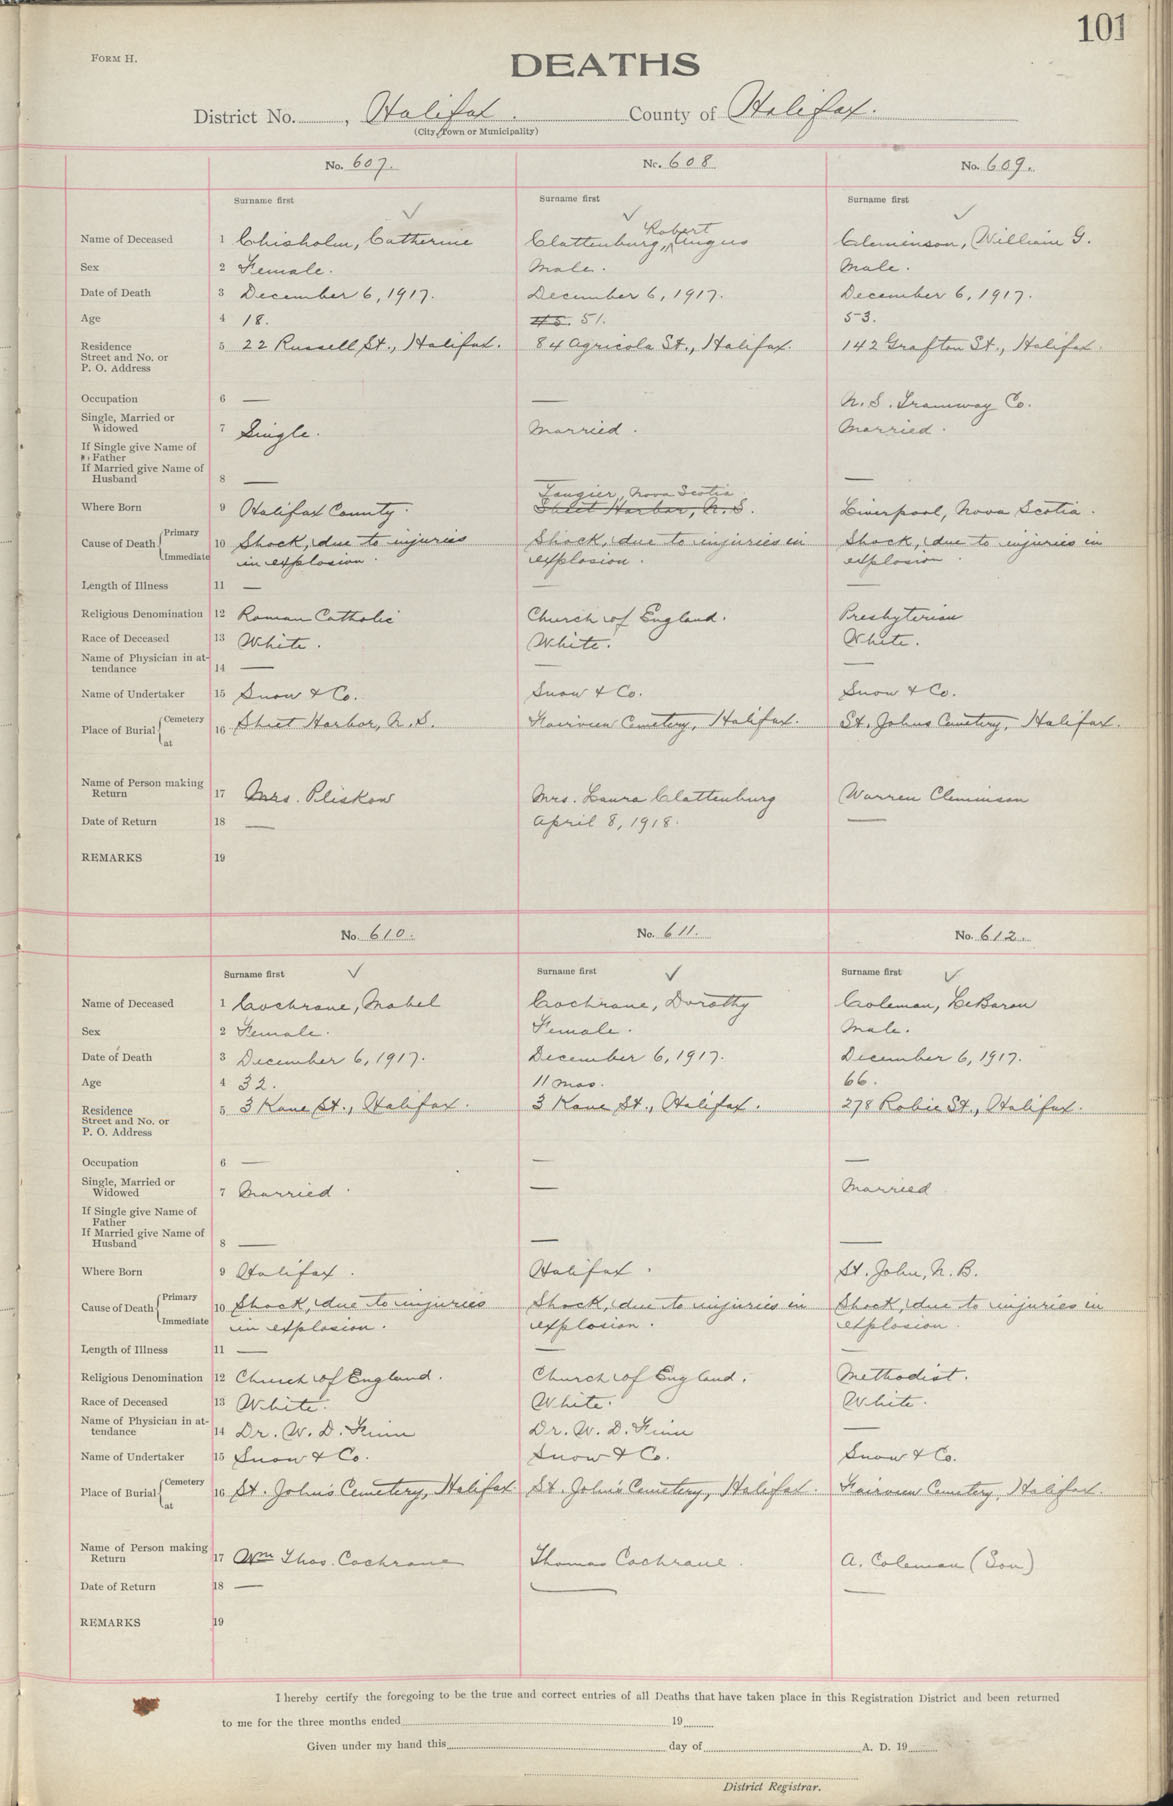 101
FORM H.
DEATHS
District No. , Halifax. County of Halifax.
(City, Town or Municipality)
No. 607. No. 608 No. 609.
Surname first Surname first Surname first
Robert
Name of Deceased 1 Chisholm, Catherine Clattenburg, Angus Cleminson, William G.
Sex 2 Female. Male. Male.
Date of Death 3 December 6, 1917. December 6, 1917. December 6, 1917.
Age 4 18. 45. 51. 53.
Residence 5 22 Russell St., Halifax. 84 Agricola St., Halifax. 142 Grafton St., Halifax.
Street and No. or
P. O. Address
Occupation 6 — — N. S. Tramway Co.
Single, Married or
Widowed 7 Single. Married. Married.
If Single give Name of
Father
If Married give Name of
Husband 8 — — —
Tangier, Nova Scotia
Where Born 9 Halifax County. Sheet Harbor, N. S. Liverpool, Nova Scotia.
Cause of Death Primary 10 Shock, due to injuries Shock, due to injuries in Shock, due to injuries in
Immediate in explosion. explosion. explosion.
Length of Illness 11 — — —
Religious Denomination 12 Roman Catholic Church of England. Presbyterian
Race of Deceased 13 White. White. White.
Name of Physician in at-
tendance 14 — — —
Name of Undertaker 15 Snow & Co. Snow & Co. Snow & Co.
Place of Burial Cemetery at 16 Sheet Harbor, N. S. Fairview Cemetery, Halifax. St. Johns Cemetery, Halifax.
Name of Person making
Return 17 Mrs. Pliskow Mrs. Laura Clattenburg Warren Cleminson
Date of Return 18 — April 8, 1918. —
REMARKS 19
No. 610. No. 611. No. 612.
Surname first Surname first Surname first
Name of Deceased 1 Cochrane, Mabel Cochrane, Dorothy Coleman, LeBaron
Sex 2 Female. Female. Male.
Date of Death 3 December 6, 1917. December 6, 1917. December 6, 1917.
Age 4 32. 11 mos. 66.
Residence 5 3 Kane St., Halifax. 3 Kane St., Halifax. 278 Robie St., Halifax.
Street and No. or
P. O. Address
Occupation 6 — — —
Single, Married or
Widowed 7 Married. — Married
If Single give Name of
Father
If Married give Name of
Husband 8 — — —
Where Born 9 Halifax. Halifax. St. John, N. B.
Cause of Death Primary 10 Shock, due to injuries Shock, due to injuries in Shock, due to injuries in
Immediate in explosion. explosion. explosion.
Length of Illness 11 — — —
Religious Denomination 12 Church of England. Church of England. Methodist.
Race of Deceased 13 White. White. White.
Name of Physician in at-
tendance 14 Dr. W. D. Finn Dr. W. D. Finn —
Name of Undertaker 15 Snow & Co. Snow & Co. Snow & Co.
Place of Burial Cemetery at 16 St. John's Cemetery, Halifax. St. John's Cemetery, Halifax. Fairview Cemetery, Halifax.
Name of Person making
Return 17 Wm Thos. Cochrane Thomas Cochrane. A. Coleman (Son)
Date of Return 18 — — —
REMARKS 19
I hereby certify the foregoing to be the true and correct entries of all Deaths that have taken place in this Registration District and been returned
to me for the three months ended 19
Given under my hand this day of A. D. 19
District Registrar.